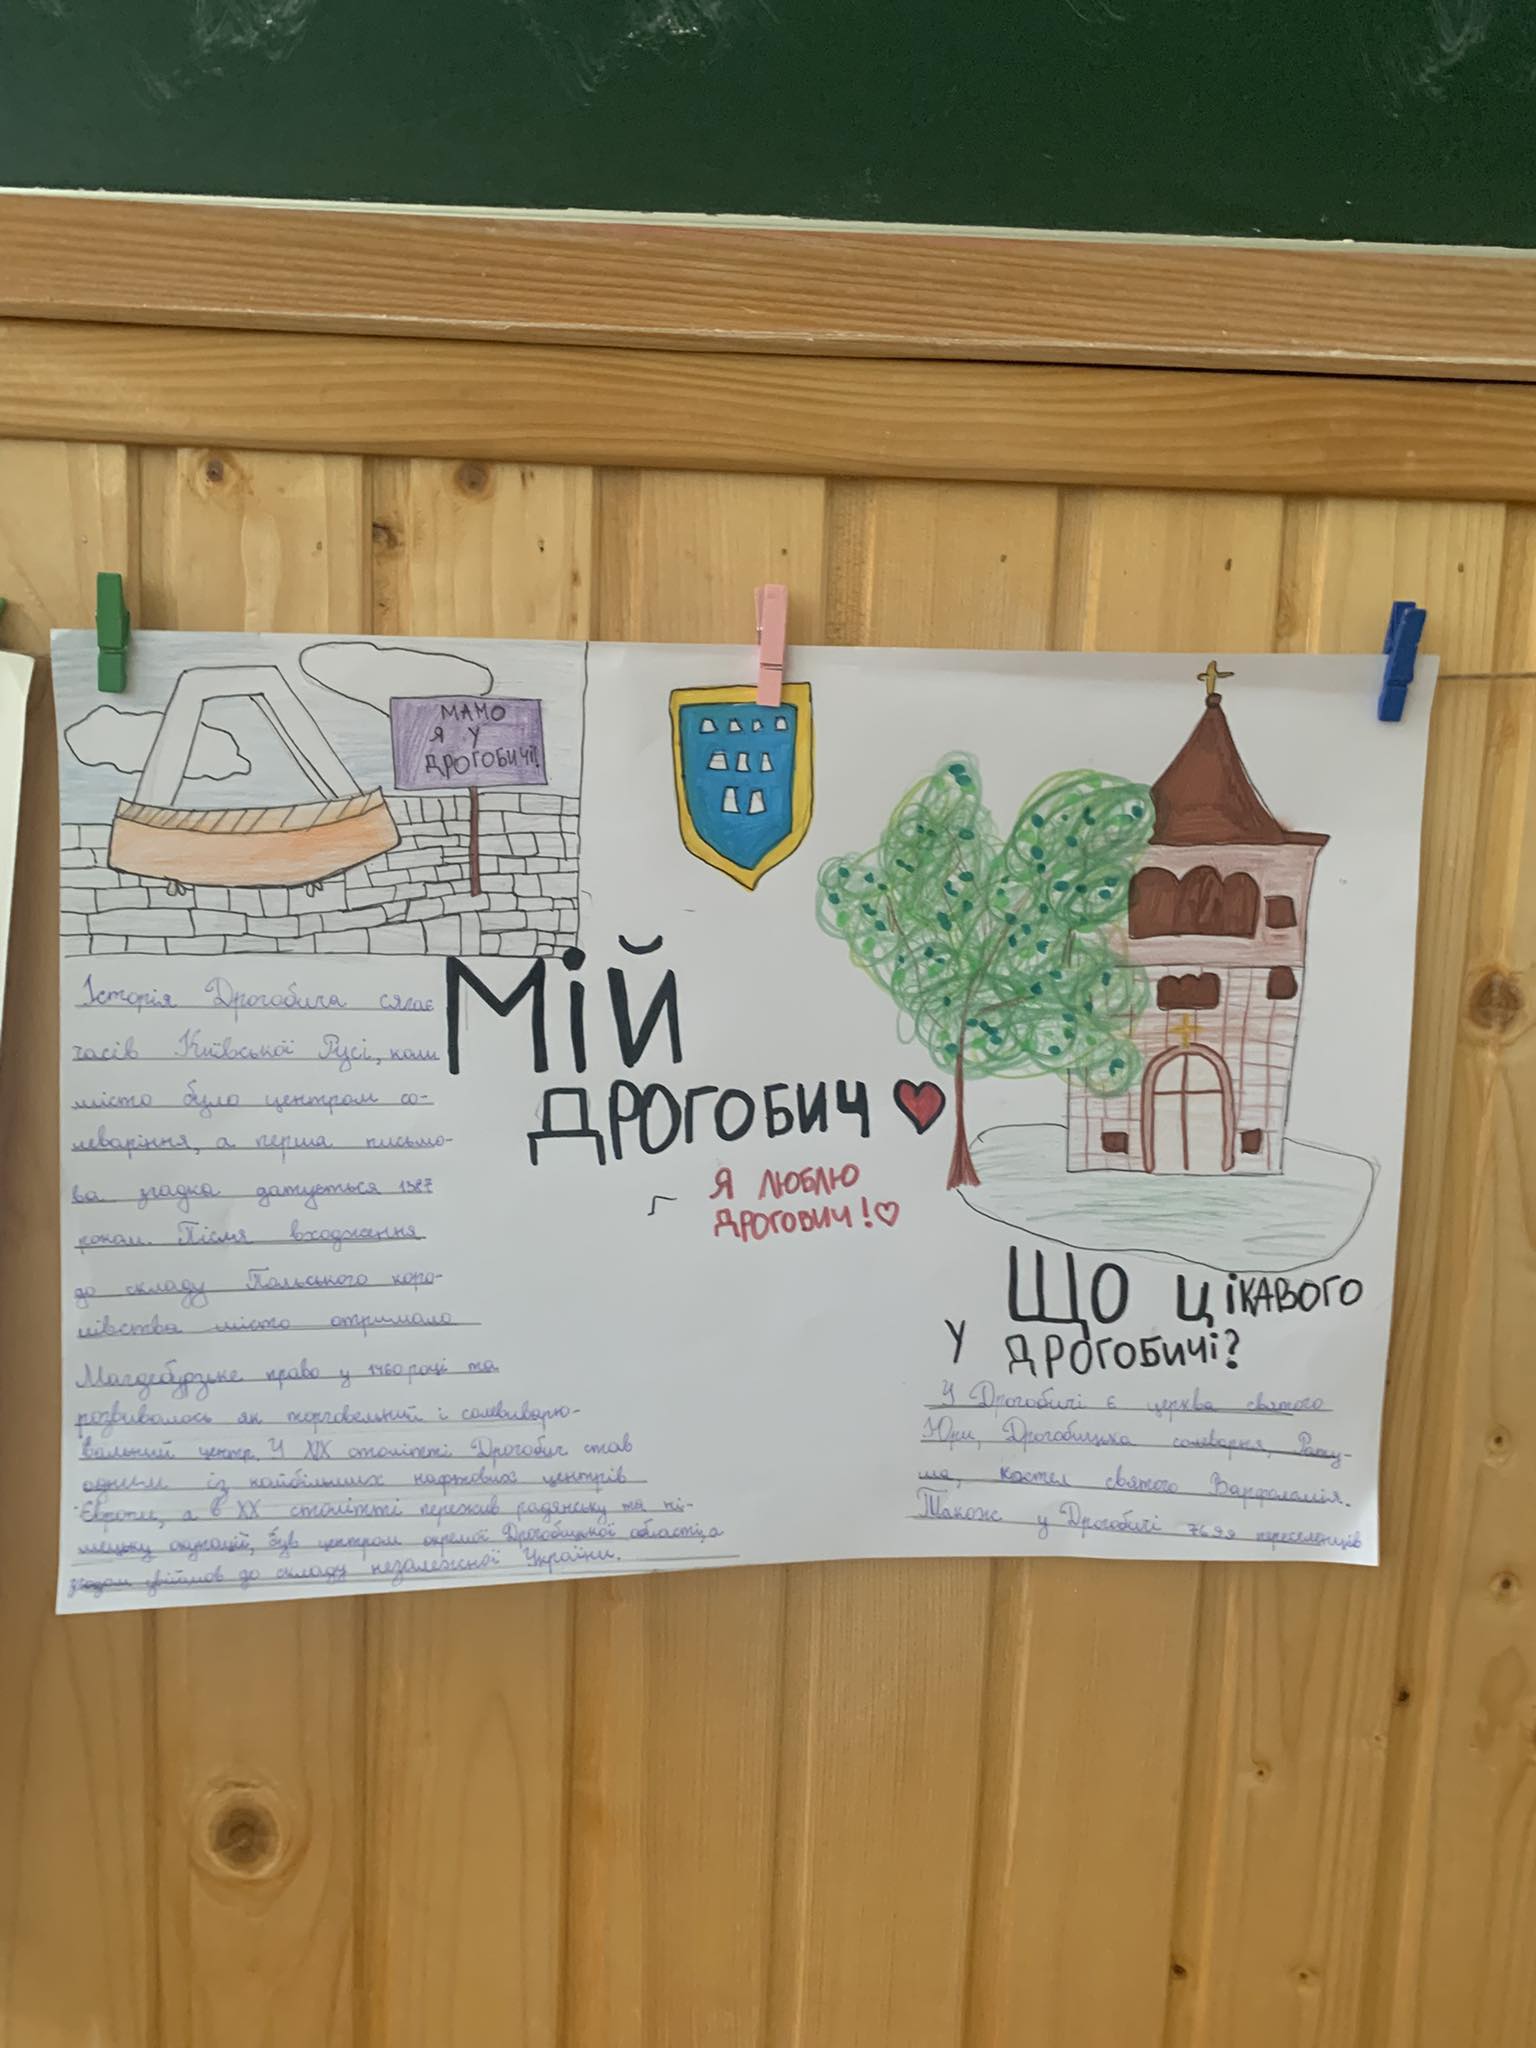 МАМО
Я У
ДРОГОБИЧІ!
Історія Дрогобича сягає
часів Київської Русі, коли
місто було центром со-
леваріння, а перша письмо-
ва згадка датується 1387
роком. Після входження
до складу Польського коро-
лівства місто отримало
Магдебурзьке право у 1460 році та
розвивалось як торговельний і солевиварю-
вальний центр. У XIX столітті Дрогобич став
одним із найбільших нафтових центрів
Європи, а в XX столітті пережив радянську та ні-
мецьку окупації, був центром окремої Дрогобицької області, а
згодом увійшов до складу незалежної України.
МІЙ
ДРОГОБИЧ
Я ЛЮБЛЮ
ДРОГОБИЧ!
ЩО ЦІКАВОГО
У ДРОГОБИЧІ?
У Дрогобичі є церква святого
Юри, Дрогобицька солеварня, Рату-
ша, костел святого Варфоломія.
Також у Дрогобичі 7699 переселенців